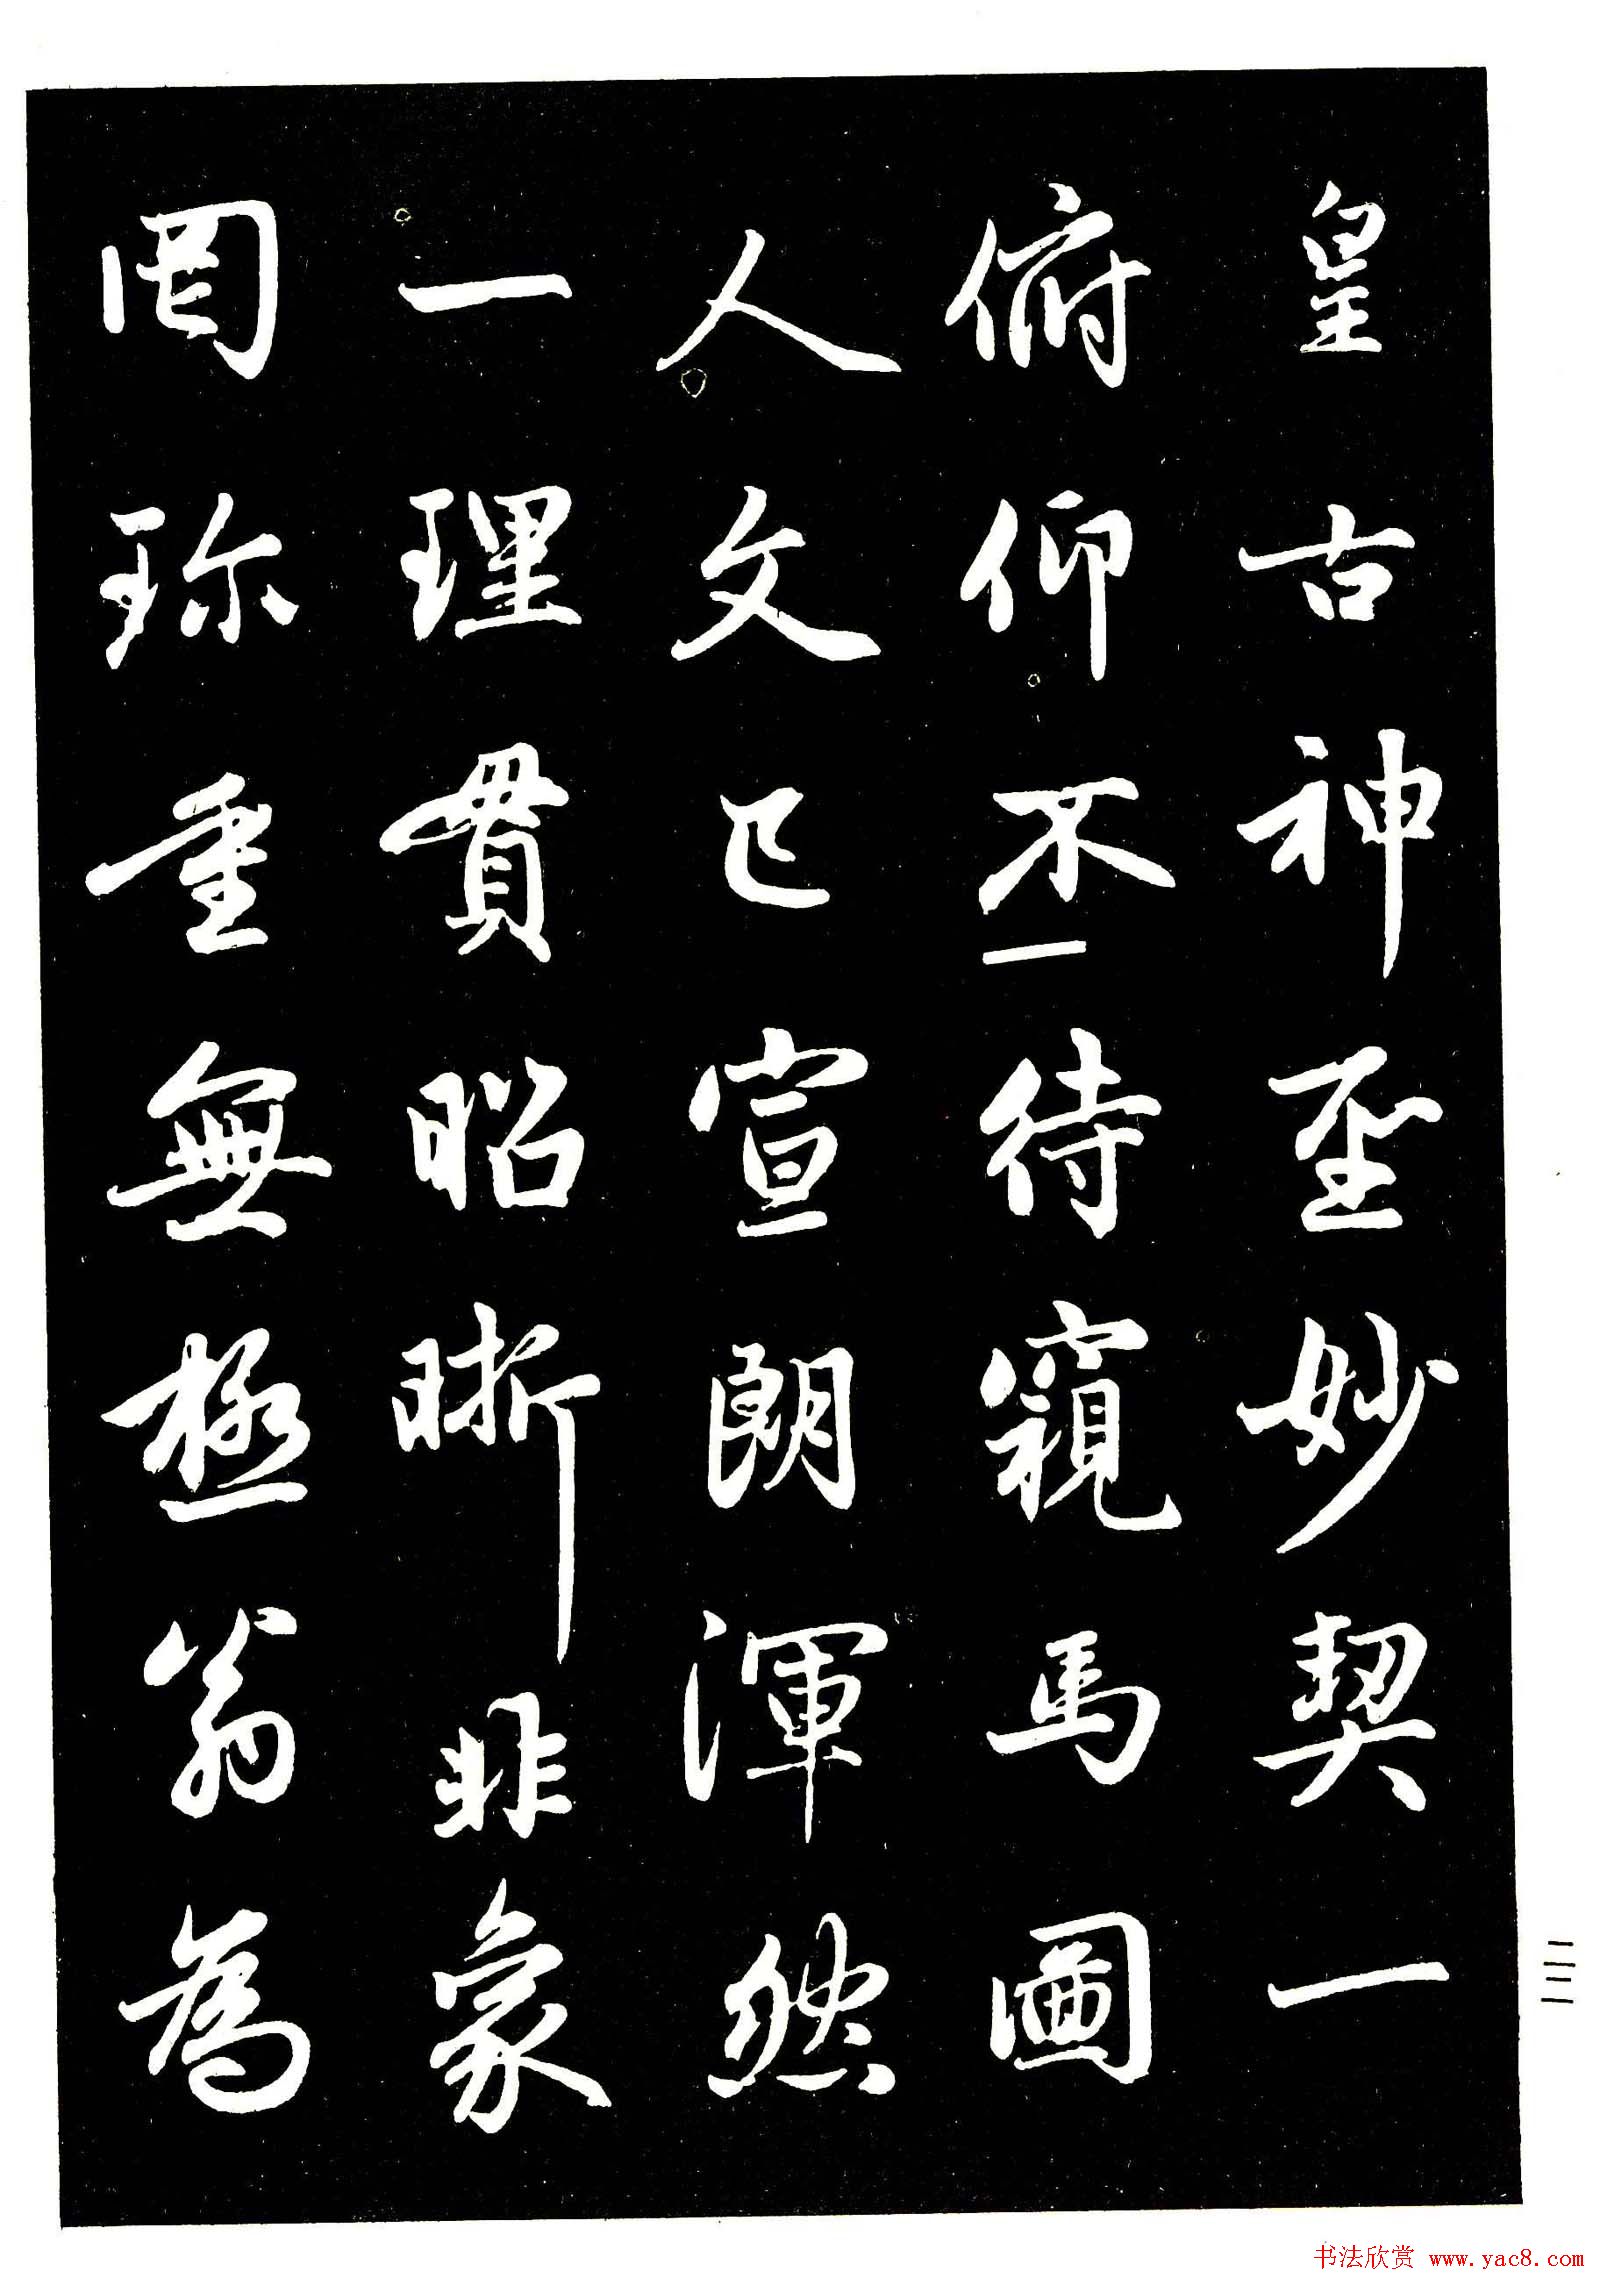 皇古神圣妙契一
俯仰不待窺馬圖
人文已宣朗渾然
一理貫昭晰非象
罔珎重無極翁為
书法欣赏 www.yac8.com